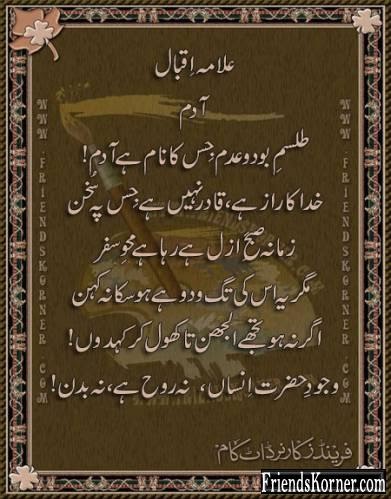 علامہ اقبال
آدم
طلسمِ بود و عدم، جس کا نام ہے آدم!
خدا کا راز ہے، قادر نہیں ہے جس پہ سُخن
زمانہ صبح ازل سے رہا ہے محوِ سفر
مگر یہ اس کی تگ و دو سے ہو سکا نہ کہن
اگر نہ ہو تجھے الجھن تو کھول کر کہدوں!
وجودِ حضرت انساں، نہ روح ہے، نہ بدن!
فرینڈز کارنر ڈاٹ کام
FriendsKorner.com
WWW.FRIENDSKORNER.COM
WWW.FRIENDSKORNER.COM